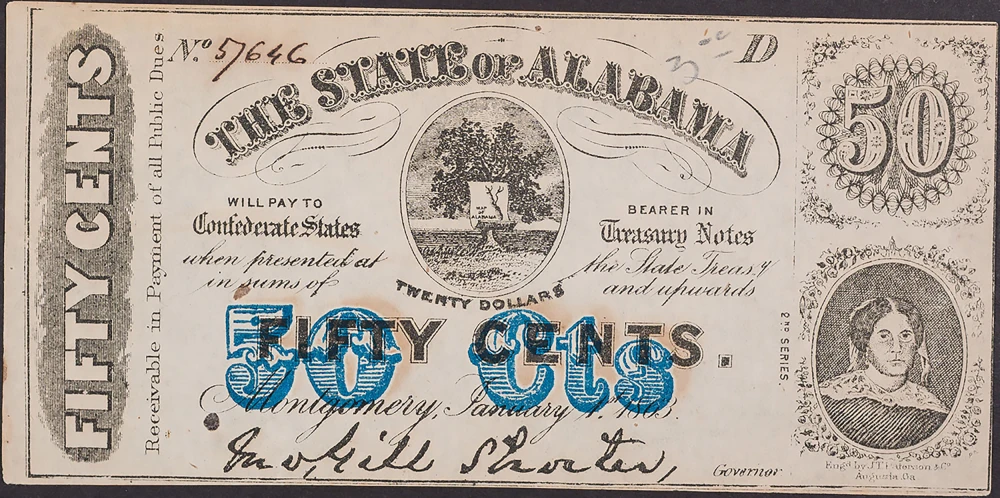 FIFTY CENTS
Receivable in Payment of all Public Dues
No 57646
D
THE STATE OF ALABAMA
50
WILL PAY TO BEARER IN
Confederate States Treasury Notes
MAP OF ALABAMA
when presented at the State Treasy
in sums of TWENTY DOLLARS and upwards
FIFTY CENTS.
50 Cts
2ND SERIES.
Montgomery, January 1st 1863.
Jno Gill Shorter,
Governor
Engd by J.T. Paterson & Co
Augusta, Ga